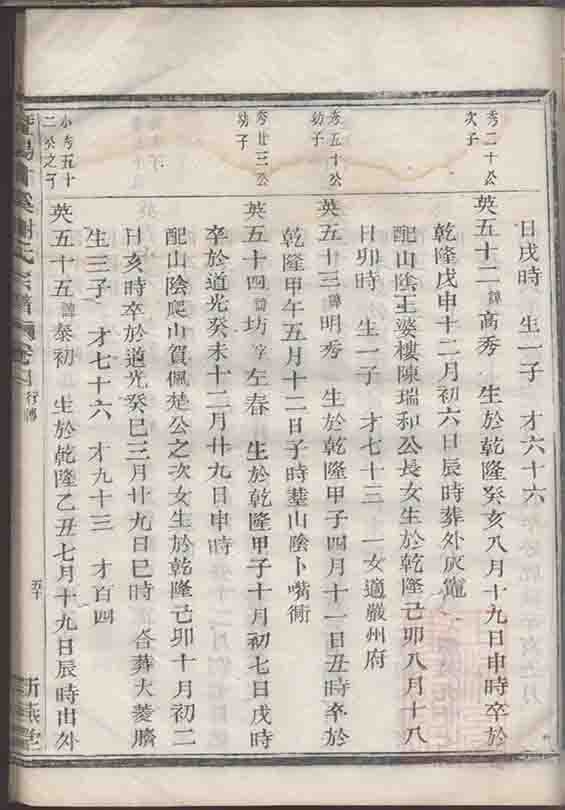 日戌時　生一子　才六十六
秀二十公
次子
英五十二諱高秀　生於乾隆癸亥八月十九日申時卒於
乾隆戊申十二月初六日辰時葬外灰竈
配山陰王婆樓陳瑞和公長女生於乾隆己卯八月十八
日卯時　生一子　才七十三　一女適嚴州府
秀五十公
幼子
英五十三諱明秀　生於乾隆甲子四月十一日丑時卒於
乾隆甲午五月十二日子時塟山陰卜嘴衕
秀廿三公
幼子
英五十四諱坊字左春　生於乾隆甲子十月初七日戌時
卒於道光癸未十二月廿九日申時
配山陰爬山賀佩楚公之次女生於乾隆己卯十月初二
日亥時卒於道光癸巳三月廿九日巳時　合葬大菱臍
生三子　才七十六　才九十三　才百四
小秀五十
二公之子
英五十五諱泰初　生於乾隆乙丑七月十九日辰時出外
謝氏宗譜
行傳
五十